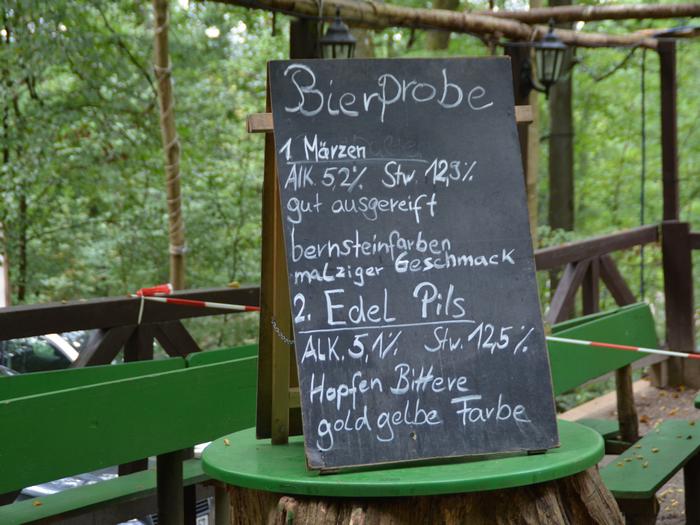 Bierprobe
1 Märzen
Alk. 5,2% Stw. 12,9%
gut ausgereift
bernsteinfarben
malziger Geschmack
2. Edel Pils
ALK. 5,1% Stw. 12,5%
Hopfen Bittere
gold gelbe Farbe